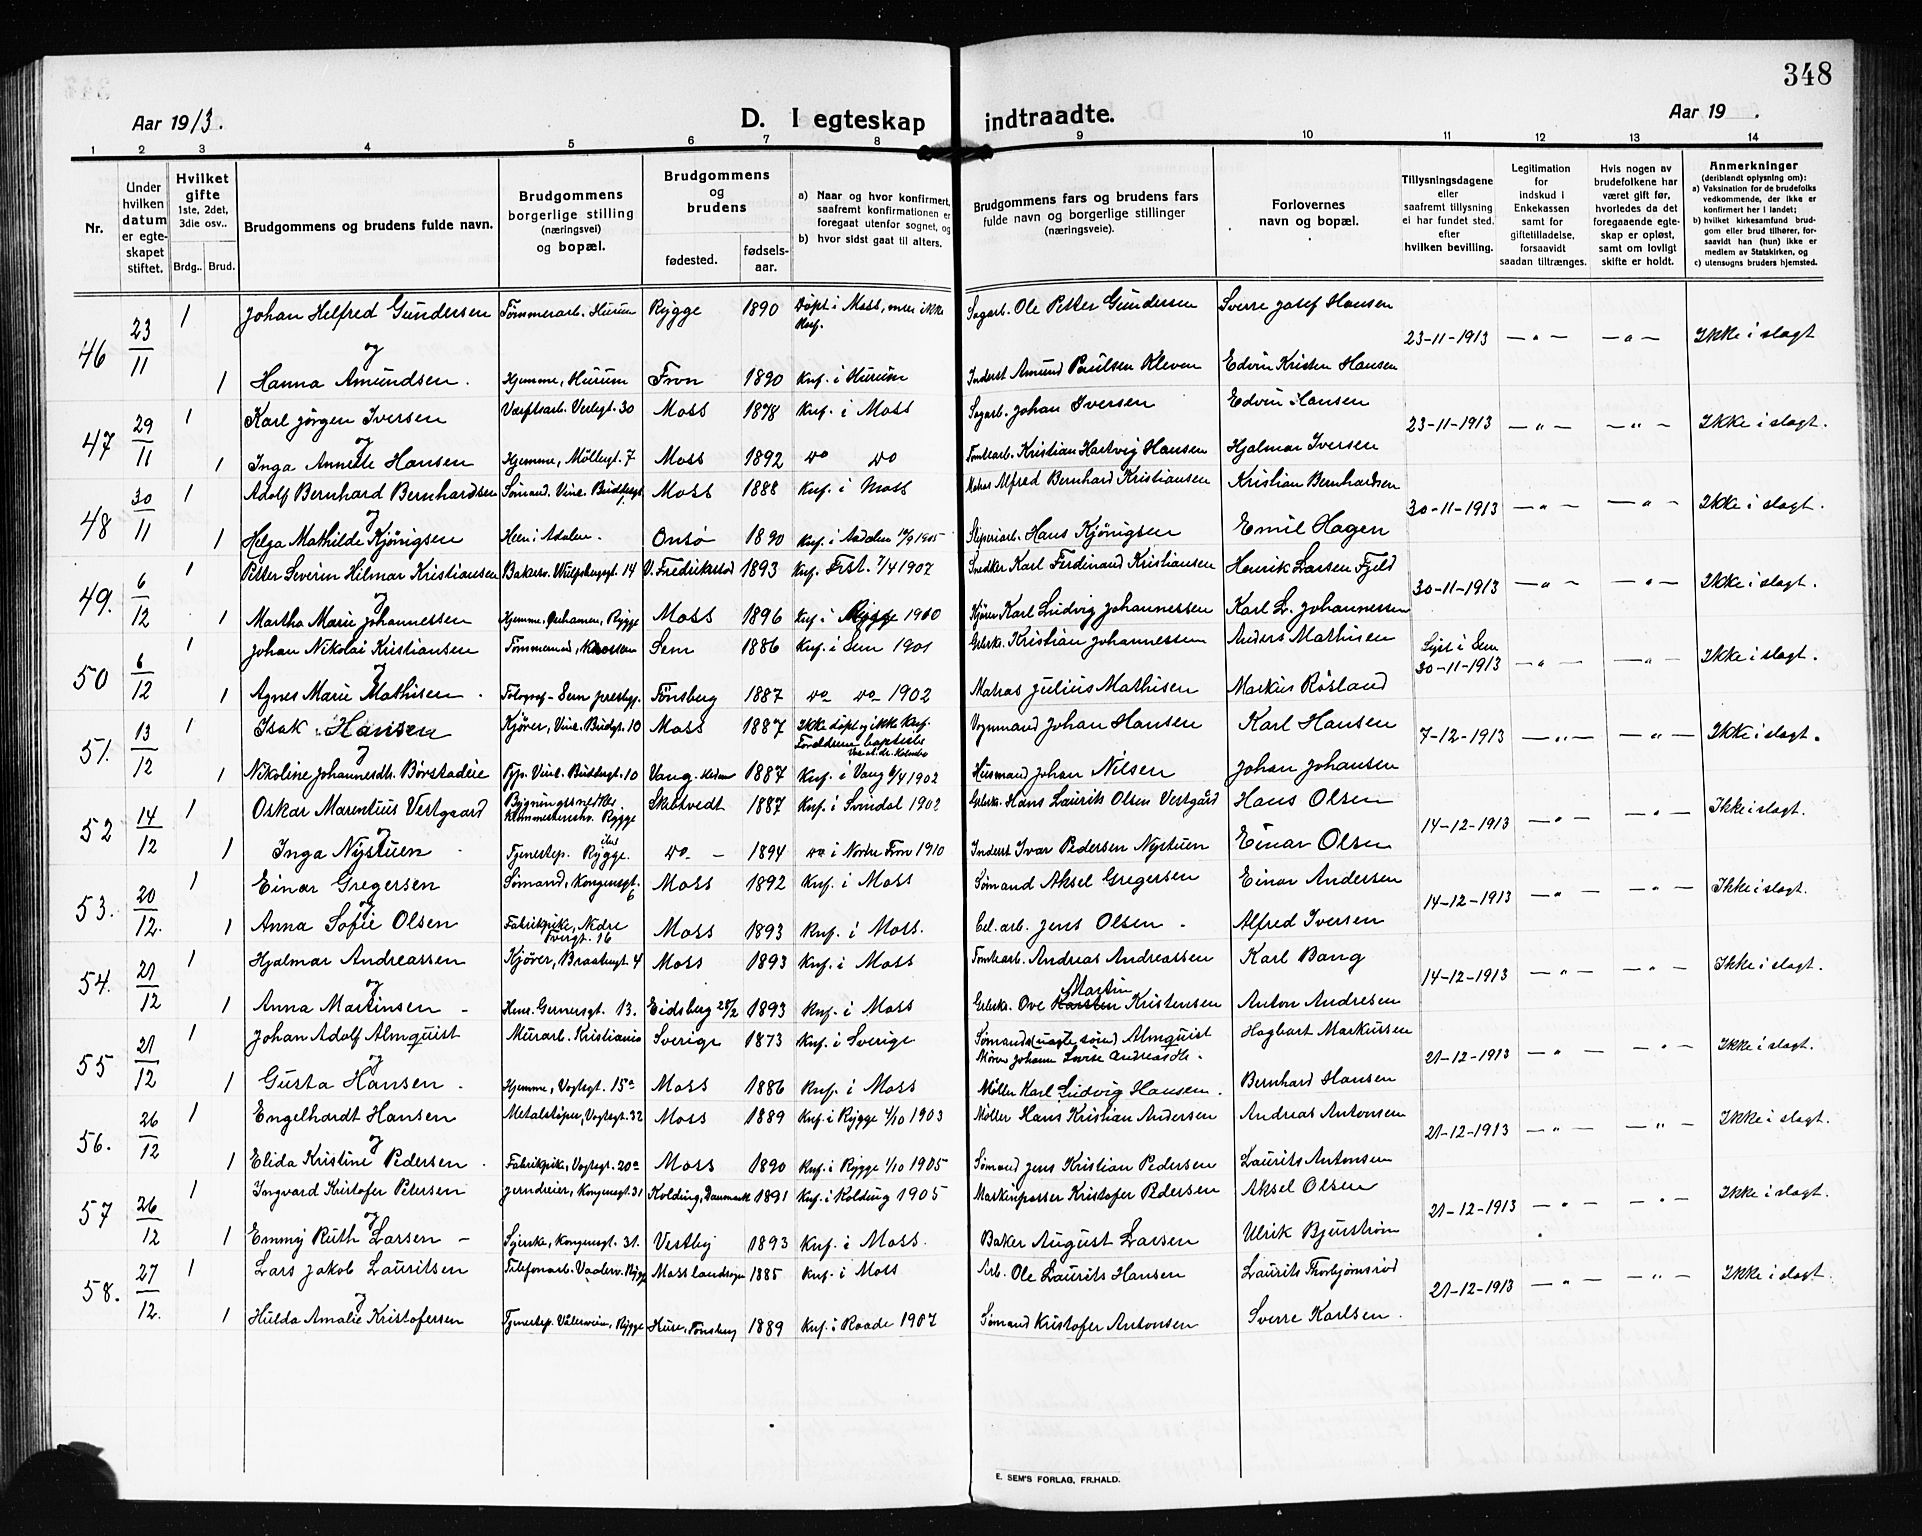 348
Aar 1913.
D. I egteskap indtraadte.
Aar 19 .
1 2 3 4 5 6 7 8 9 10 11 12 13 14
Nr.
Under hvilken datum er egteskapet stiftet.
Hvilket gifte 1ste, 2det, 3die osv..
Brdg.. Brud.
Brudgommens og brudens fulde navn.
Brudgommens borgerlige stilling (næringsvei) og bopæl.
Brudgommens og brudens
fødested.
fødsels-aar.
a) Naar og hvor konfirmert, saafremt konfirmationen er foregaat utenfor sognet, og
b) hvor sidst gaat til alters.
Brudgommens fars og brudens fars fulde navn og borgerlige stillinger (næringsveie).
Forlovernes navn og bopæl.
Tillysningsdagene eller saafremt tillysning ei har fundet sted. efter hvilken bevilling.
Legitimation for indskud i Enkekassen samt for giftetilladelse, forsaavidt saadan tiltrænges.
Hvis nogen av brudefolkene har været gift før, hvorledes da det foregaaende egteskap er opløst, samt om lovligt skifte er holdt.
Anmerkninger (deriblandt oplysning om): a) Vaksination for de brudefolks vedkommende, der ikke er konfirmert her i landet; b) hvilket kirkesamfund brudgom eller brud tilhører, forsaavidt han (hun) ikke er medlem av Statskirken, og c) utensogns bruders hjemsted.
46 23/11 1 Johan Helfred Gundersen Tømmerarb. Hurum Rygge 1890 Døpt i Moss, men ikke Knf. Sagarb. Ole Petter Gundersen Sverre Josef Hansen 23-11-1913 — „ — — „ — Ikke i slagt
og
1 Hanna Amundsen. Hjemme, Hurum Fron 1890 Knf. i Hurum Inderst Amund Paulsen Kleven Edvin Kristen Hansen
47 29/11 1 Karl Jörgen Iversen Værftsarb. Verlegt. 30 Moss 1878 Knf. i Moss Sagarb. Johan Iversen Edvin Hansen 23-11-1913 — „ — — „ — Ikke i slagt.
og
1 Inga Annette Hansen Hjemme, Möllegt. 7 Moss 1892 do do Tomtearb. Kristian Hartvig Hansen Hjalmar Iversen
48 30/11 1 Adolf Bernhard Bernhardsen Sømand. Vinc. Budbergt. Moss 1888 Knf. i Moss Matros Alfred Bernhard Kristiansen Kristian Bernhardsen 30-11-1913 — „ — — „ — Ikke i slagt.
og
1 Helga Mathilde Kjönigsen Heen i Adalen. Onsø 1890 Knf. i Aadalen 1905 Sliperiarb. Hans Kjönigsen Emil Hagen
49. 6/12 1 Petter Severin Hilmar Kristiansen V. Fredrikstad 1893 Knf. Frst. 7/4 1907 Snedker Karl Ferdinand Kristiansen Henrik Larsen Fjeld 30-11-1913 — „ — — „ — Ikke i slagt.
og
1 Martha Marie Johannessen Hjemme, Rygge Moss 1896 Knf. i Rygge 1910 Kjører Karl Ludvig Johannessen Karl L. Johannessen
50 6/12 1 Johan Nikolai Kristiansen Tømmermd, Sem 1886 Knf. i Sem 1901 Gbrsk. Kristian Johannessen Anders Mathisen Lyst i Sem 30-11-1913 — „ — — „ — Ikke i slagt.
og
1 Agnes Marie Mathisen. Fotograf - Sem prestegj. Tønsberg 1887 do do 1902 Matros Julius Mathisen Markus Røsland
51. 13/12 1 Isak Hansen Kjører, Vinc. Budgt. 10 Moss 1887 Ikke døpt og ikke Knf. Forældrene baptister Vognmand Johan Hansen Karl Hansen 7-12-1913 — „ — — „ — Ikke i slagt.
og
1 Nikoline Johannesdt. Börstadeie Tjp. Vinc. Budbergt. 10 Vang. Hedem. 1887 Knf. i Vang 6/4 1902 Husmand Johan Nilsen Johan Johansen
52 14/12 1 Oskar Marentius Vestgaard Bygningssnedker. Rygge Skibtvedt 1887 Knf. i Svindal 1902 Gbrsk. Hans Laurits Olsen Vestgård Hans Olsen 14-12-1913 — „ — „ — Ikke i slagt
og
1 Inga Nystuen Tjenestep. Rygge. do — 1894 do i Nordre Fron 1910 Inderst Ivar Pedersen Nystuen Einar Olsen
53. 20/12. 1 Einar Gregersen Sømand, Kongensgt. 6 Moss 1892 Knf. i Moss Sømand Aksel Gregersen Einar Andersen 14-12-1913 — „ — — „ — Ikke i slagt.
og
1 Anna Sofie Olsen Fabrikpike, Nedre Tvergt. 16 Moss 1893 Knf. i Moss. Cel. arb. Jens Olsen. Alfred Iversen
54. 21/12 1 Hjalmar Andreassen Kjører, Braatengt. 4 Moss 1893 Knf. i Moss Tomtearb. Andreas Andreassen Karl Bang 14-12-1913 — „ — — „ — Ikke i slagt.
og
1 Anna Martinsen – Henr. Gernersgt. 13. Eidsberg 28/2 1893 Knf. i Moss Gbrsk. Ove Karsten Martin Kristensen Anton Andresen
55 21/12 1 Johan Adolf Almquist Murarb. Kristiania Sverige 1873 Knf. i Sverige Sømands (uægte sön) Almquist Moren Johanne Lovise Andreasdt. Hagbart Markussen 21-12-1913 — „ — — „ — Ikke i slagt.
og
1 Gusta Hansen. Hjemme, Vogtsgt. 15a Moss 1886 Knf. i Moss Møller Karl Ludvig Hansen. Bernhard Hansen
56. 26/12 1 Engelhardt Hansen Metalstøper, Vogtsgt. 32 Moss 1889 Knf. i Rygge 4/10 1903 Møller Hans Kristian Andersen Andreas Antonsen 21-12-1913 — „ — — „ — Ikke i slagt.
og
1 Elida Kristine Pedersen. Fabrikpike, Vogtsgt. 20a Moss 1890 Knf. i Rygge 1/10 1905 Sømand Jens Kristian Pedersen Laurits Antonsen
57 26/12 1 Ingvard Kristofer Petersen Jerndreier, Kongensgt. 31 Kolding, Danmark 1891 Knf. i Kolding 1905 Maskinpasser Kristofer Pedersen Aksel Olsen 21-12-1913 — „ — — „ — Ikke i slagt.
og
1 Emmy Ruth Larsen – Syerske, Kongensgt. 31. Vestby 1893 Knf. i Moss. Baker August Larsen Ulrik Bjurström
58. 27/12. 1 Lars Jakob Lauritsen Telefonarb. Vaalerv. Rygge Moss landsogn 1885 Knf. i Moss Arb. Ole Laurits Hansen Laurits Thorbjørnsrød 21-12-1913 — „ — — „ — Ikke i slagt.
og
1 Hulda Amalie Kristofersen Tjenestep. Vålerveien, Rygge Huse, Tønsberg 1889 Knf. i Raade 1907 Sømand Kristofer Antonsen Sverre Karlsen.
E. SEM'S FORLAG, FR.HALD.